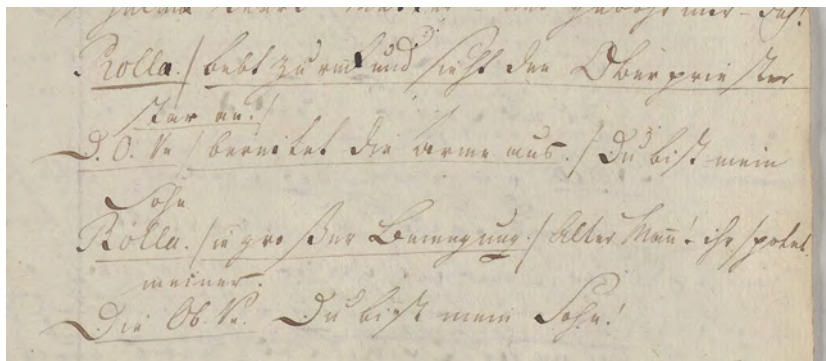 und gehorcht mir – doch!
Rolla. / bebt zurück und sieht den Oberpriester
star an. /
D. O. Pr / breitet die Arme aus. / Du bist mein
Sohn
Rolla. / in großer Bewegung. / Alter Mann! ihr spotet
meiner.
Die Ob. Pr. Du bist mein Sohn!